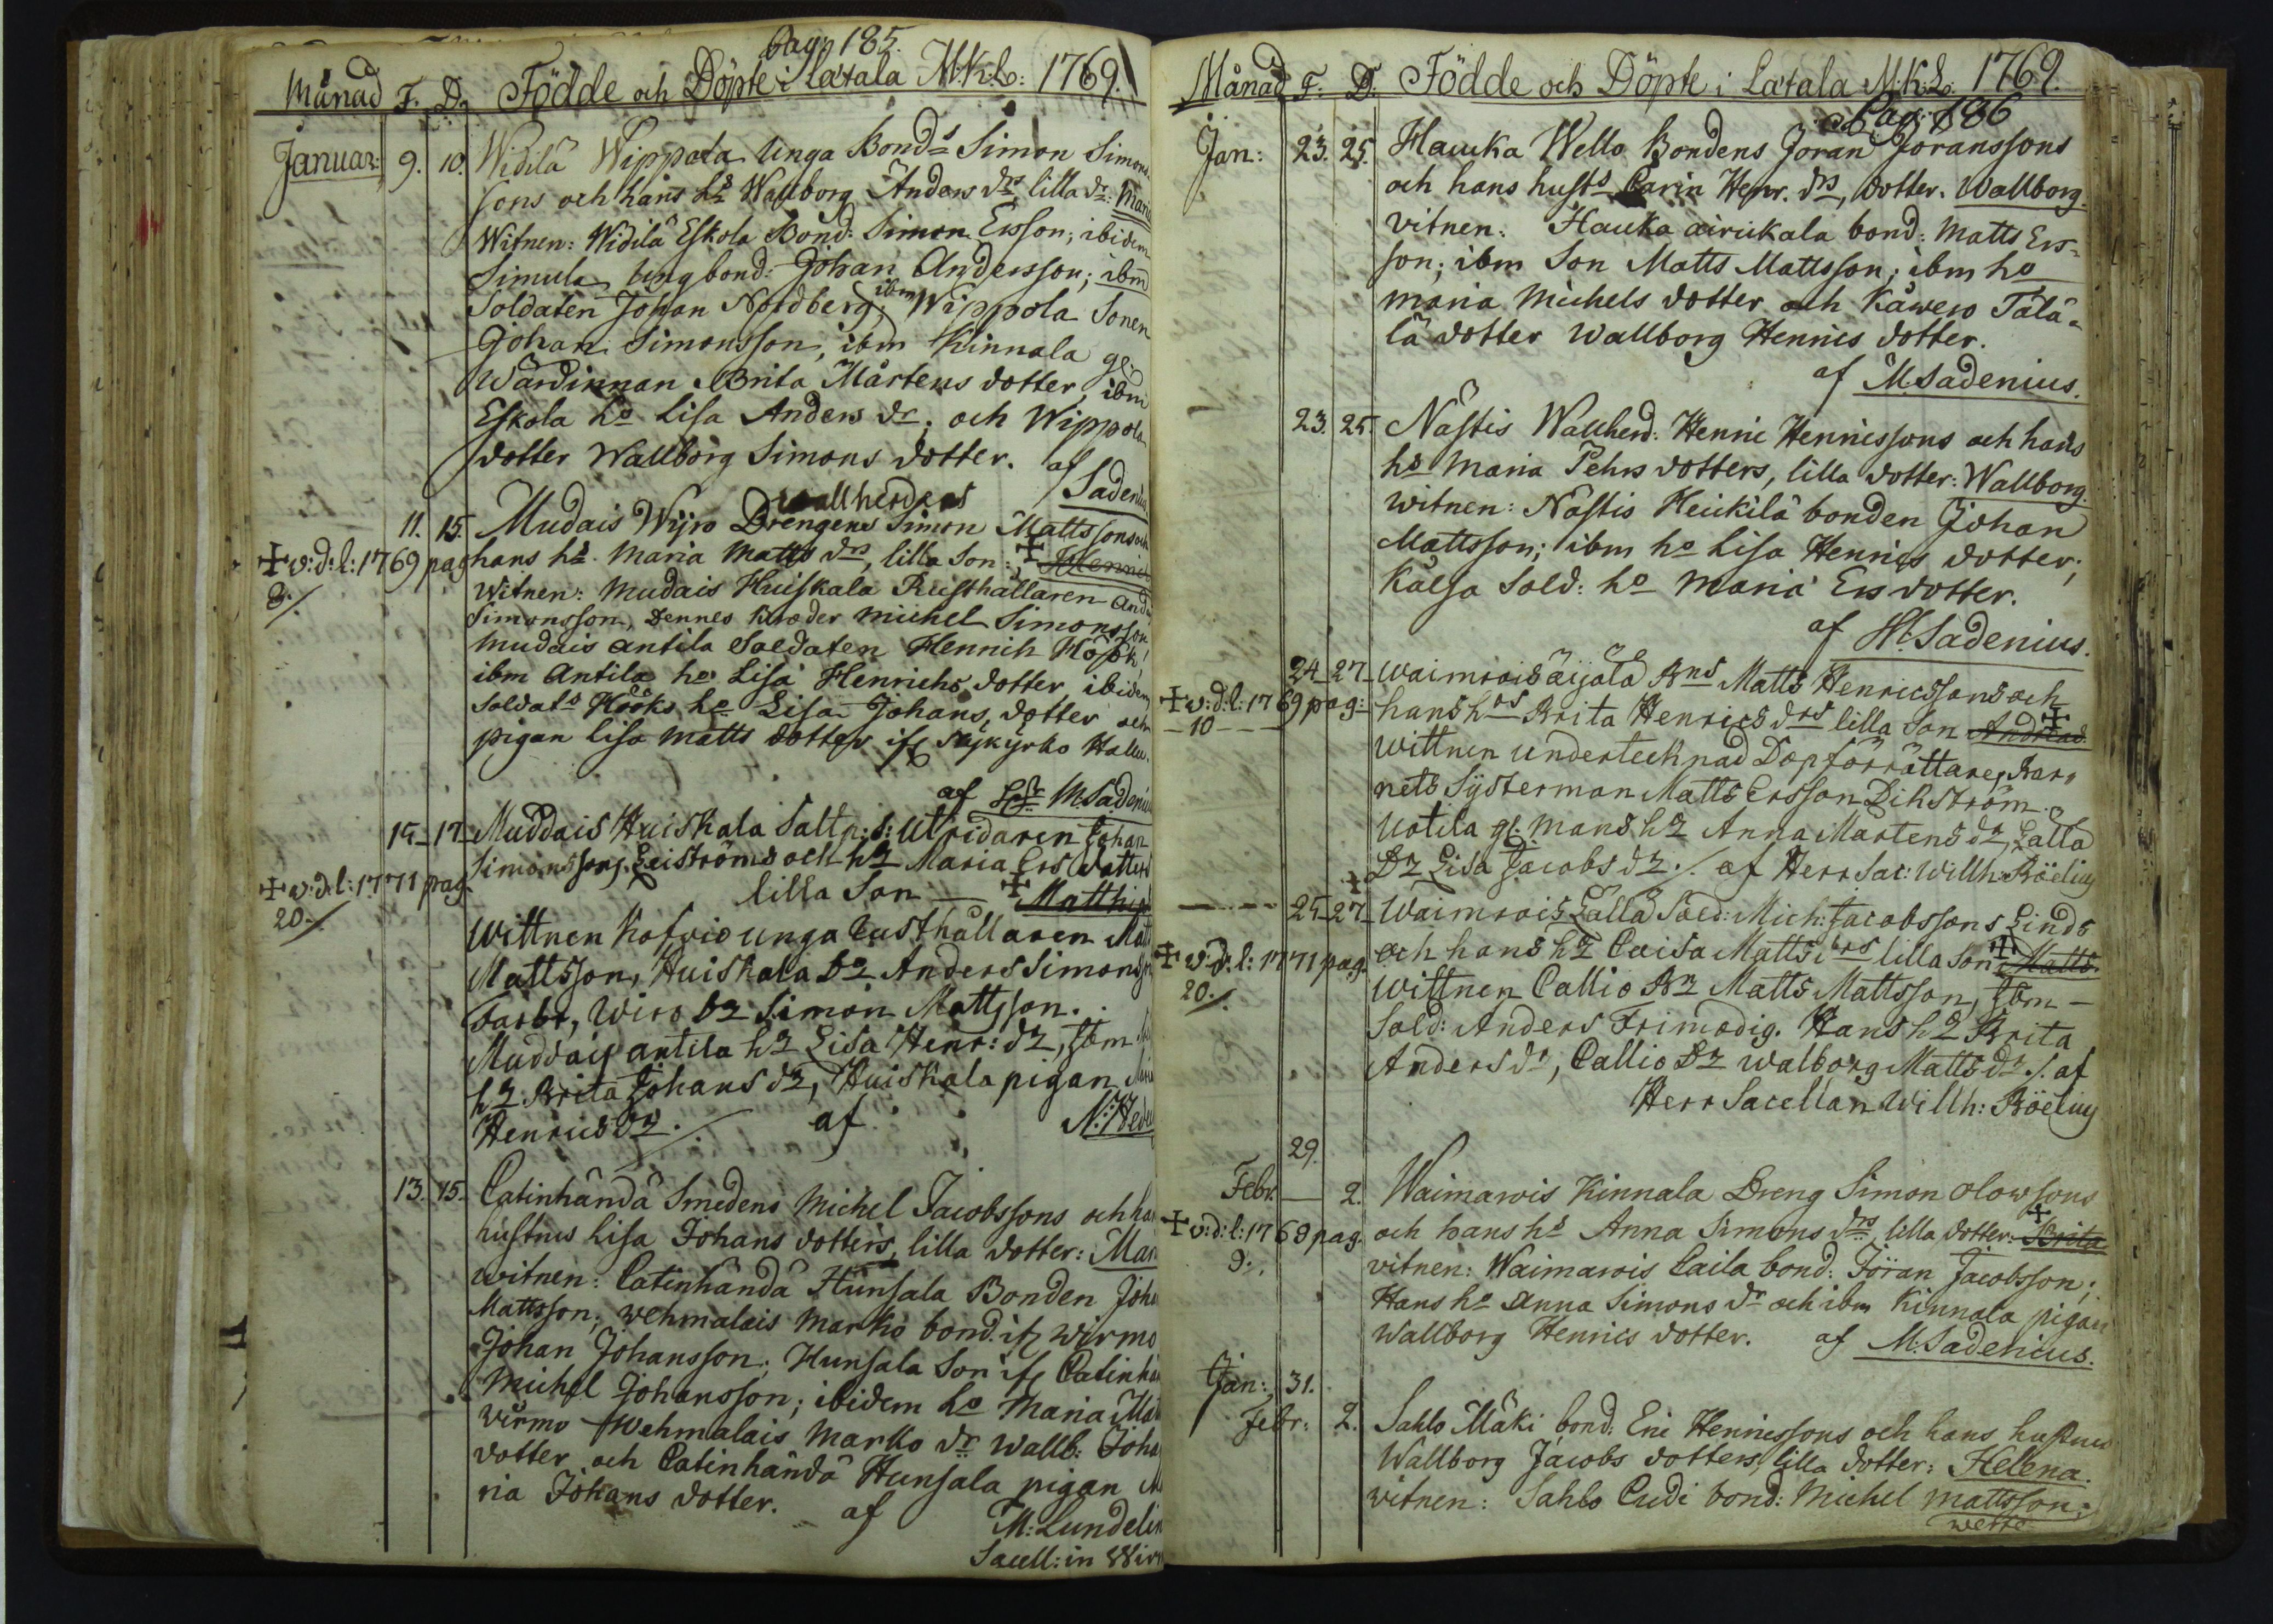 Pag: 185.
Månad F. D. Födde och Döpte i Latala M.K.L: 1769.
Januar: 9. 10. Widilä Wippola Unga Bonds Simon Simons
sons och hans hs Wallborg Anders drs lilla dr: Maria
Witnen: Widilä Eskola Bond: Simon Ersson; ibidem
Simula Ung bond: Johan Andersson; ibm
Soldaten Johan Nordberg; ibm Wippola Sonen
Johan Simonsson, ibm Kinnala gl.
Wärdinnan Brita Mårtens dotter, ibm
Eskola ho Lisa Anders dr; och Wippola
dotter Wallborg Simons dotter. af
Sadenius
wallherdens
11. 15. Mudais Wijro Drengens Simon Mattssons och
✝ v:d:l: 1769 pag hans hs Maria Matts drs, lilla Son: ✝ Henric
8./.
Witnen: Mudais Huiskala Rusthållaren And
Simonsson, Dennes broder Michel Simonsson
Mudais Antila Soldaten Hennih Höök,
ibm Antila ho Lisa Henrichs dotter, ibidem
Soldats Hööks ho Lisa Johans dotter och
pigan Lisa Matts dotter if Nykyrko
af M. Sadeniu
15 17 Muddais Huiskala Saltp: s: Utridaren Johan
Simonssons Leiströms och hr Maria Ers dotters
✝ v:d:l: 1771 pag. lilla Son — ✝ Matthias
20./.
Wittnen Kofvio unga Rusthållaren Matt
Mattsson, Huiskala Dr Anders Simonss
Farbr, Wiro Dr Simon Mattsson.
Muddais Antila hr Lisa Henr: dr, Ibm
hr Brita Johans dr, Huiskala pigan
Henrics dr ./. af N: Hede
13. 15. Catinhändä Smedens Michel Jacobssons och ha
hustrus Lisa Johans dotters, lilla dotter: Mar
witnen: Catinhändä Hunsala Bonden Joha
Mattsson; wehmalais Marko bond. if wirmo
Johan Johansson; Hunsala Son if Catinhä
Michel Johansson; ibidem ho Maria Mat
wirmo Wehmalais Marko dr Wallb: Joha
dotter och Catinhändä Hunsala pigan
ria Johans dotter. af M: Lundelin
Sacell: in Wir
Månad F. D. Födde och Döpte i Latala M.K.L. 1769.
Pag: 186
Jan: 23. 25. Hauka Wello Bondens Joran Joranssons
och hans husts Carin Henr. drs, dotter. Wallborg.
vitnen. Hauka airikala bond: Matts Ers=
son; ibm Son Matts Mattsson; ibm ho
Maria Michels dotter och Käwero Tälä=
lä dotter Wallborg Hennics dotter.
af M. Sadenius.
23. 25. Nästis Wallherd: Henric Henricssons och hans
hs Maria Pehrs dotters, lilla dotter: Wallborg.
witnen: Nästis Heickilä bonden Johan
Mattsson; ibm ho Lisa Hennics dotter;
Kalsa Sold: ho Maria Ers dotter.
af M. Sadenius.
24 27 Waimrois äijälä Bns Matts Henricssons och
✝ v:d:l: 1769 pag: hans hrs Brita Henrics drs lilla Son ✝ Andreas
10
Wittnen underteck nad Dopförrättare, Bar=
nets Systerman Matts Ersson Dikström.
Uotila gl: mans hr Anna Martens dr, Lalla
Dr Lisa Jacobs dr ./. af Herr Sac: Willh: Böelius
25 27 Waimrois Lalla Sold: Mich: Jacobssons Linds
✝ v:d:l: 1771 pag. och hans hr Caisa Matts drs lilla Son ✝ Matts.
20./.
Wittnen Callio Br Matts Mattsson, Ibm —
Sold: Anders Frimodig. Hans hr Brita
Anders dr, Callio Dr Walborg Matts dr ./. af
Herr Sacellan Willh: Böelius
29.
Febr. — 2. Waimarois Kinnala Dreng Simon Olowsons
✝ v:d:l: 1769 pag. och hans hs Anna Simons drs lilla dotter: ✝ Brita
9.
vitnen: Waimarois Caila bond: Jöran Jacobsson;
Hans ho Anna Simons dr och ibm Kinnala pigan
Wallborg Hennics dotter. af M. Sadenius.
Jan: 31.
Febr: 2. Sahlo Mäki bond: Eric Henricssons och hans hustrus
Wallborg Jacobs dotters, lilla dotter: Helena.
witnen: Sahlo Cudi bond: Michel Mattsson;